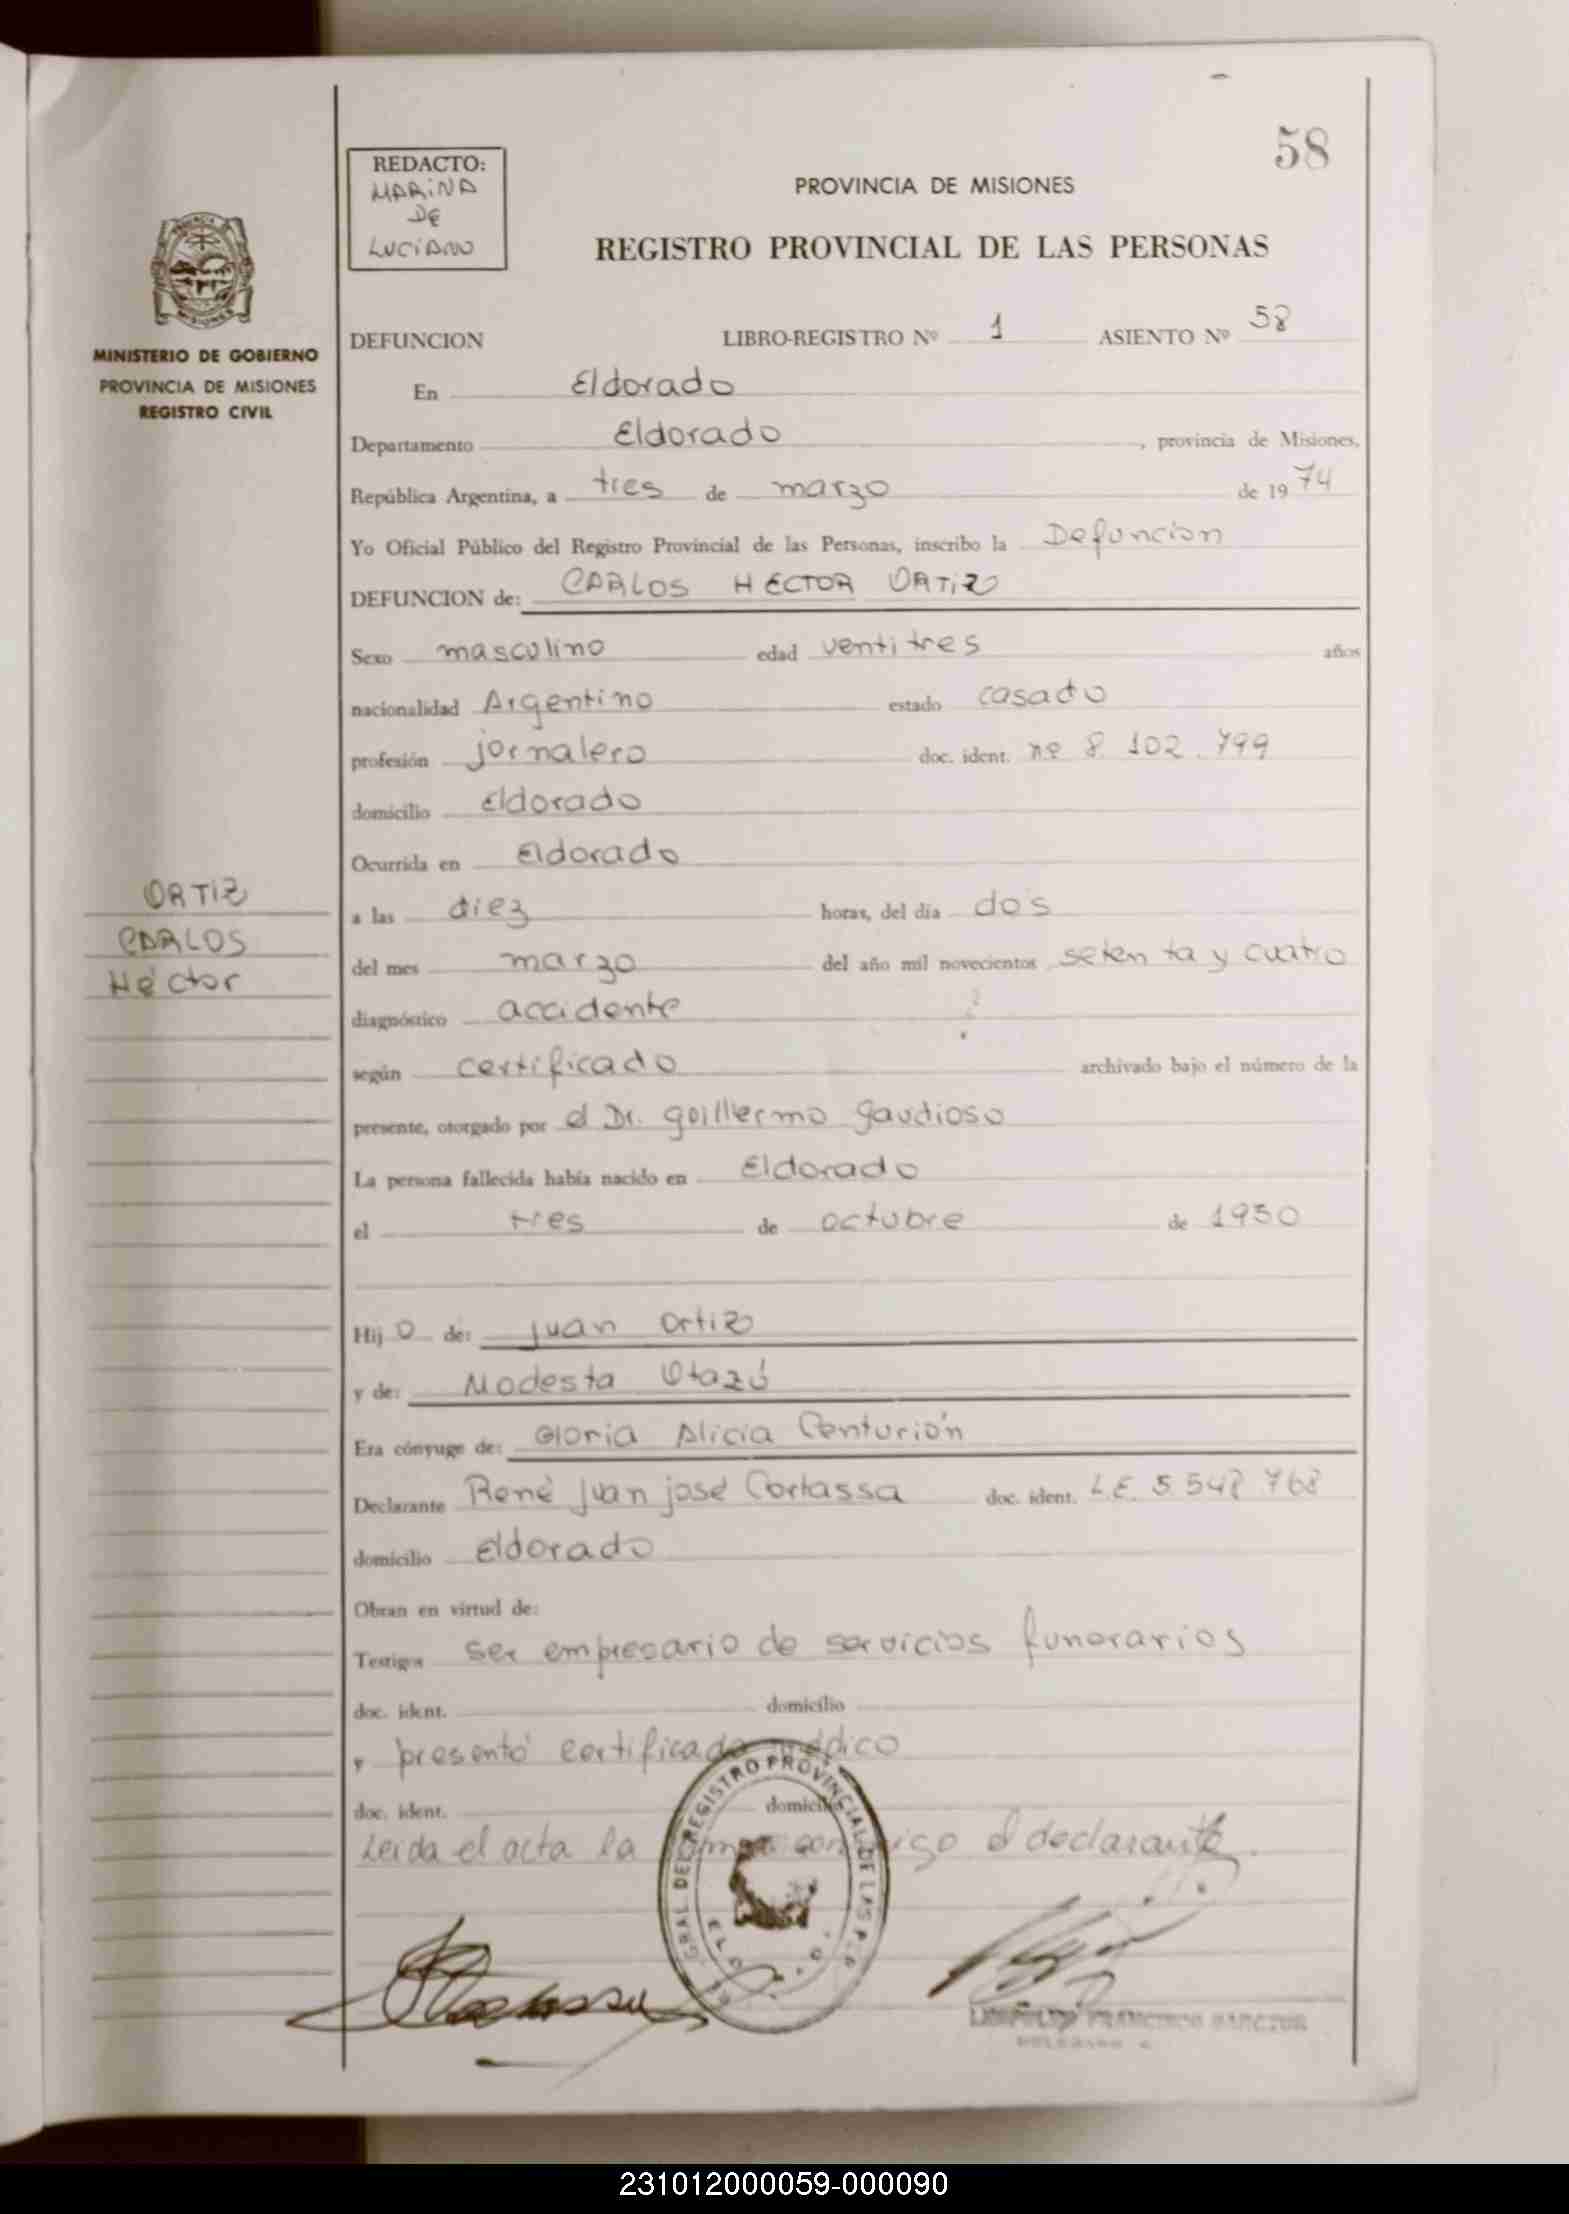 58
REDACTO:
MARINA
DE
LUCIANO
PROVINCIA DE MISIONES
REGISTRO PROVINCIAL DE LAS PERSONAS
MISIONES
MINISTERIO DE GOBIERNO
PROVINCIA DE MISIONES
REGISTRO CIVIL
DEFUNCION LIBRO-REGISTRO Nº 1 ASIENTO Nº 58
En Eldorado
Departamento Eldorado, provincia de Misiones,
República Argentina, a tres de marzo de 1974
Yo Oficial Público del Registro Provincial de las Personas, inscribo la Defuncion
DEFUNCION de: CARLOS HECTOR ORTIZ
Sexo masculino edad ventitres años
nacionalidad Argentino estado casado
profesión jornalero doc. ident. nº 8.102.799
domicilio Eldorado
Ocurrida en Eldorado
ORTIZ
CARLOS
Héctor
a las diez horas, del día dos
del mes marzo del año mil novecientos setenta y cuatro
diagnóstico accidente
según certificado archivado bajo el número de la
presente, otorgado por el Dr. Guillermo Gaudioso
La persona fallecida había nacido en Eldorado
el tres de octubre de 1950
Hijo de: Juan Ortiz
y de: Modesta Otazú
Era cónyuge de: Gloria Alicia Centurión
Declarante René Juan José Cortassa doc. ident. L.E. 5.548.768
domicilio Eldorado
Obran en virtud de:
Testigos ser empresario de servicios funerarios
doc. ident. domicilio
y presentó certificado médico
doc. ident. domicilio
Leida el acta la firma conmigo el declarante.
GRAL. DEL REGISTRO PROVINCIAL DE LAS P
FRANCISCO
231012000059-000090